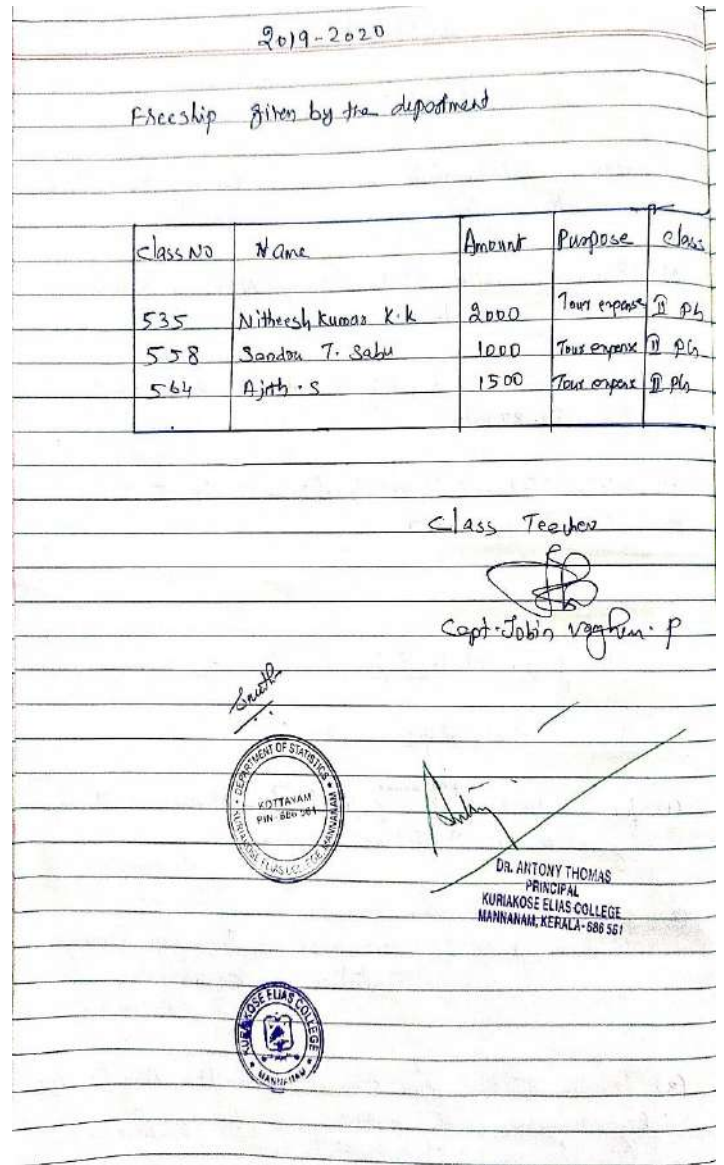 2019-2020
Freeship given by the department
Class No Name Amount Purpose Class
535 Nitheesh Kumar K.K 2000 Tour expense II PG
558 Sandra T. Sabu 1000 Tour expense II PG
564 Ajith.S 1500 Tour expense II PG
Class Teacher
Capt. Jobin Varghese. P
DEPARTMENT OF STATISTICS
KOTTAYAM
PIN-686 561
KURIAKOSE ELIAS COLLEGE, MANNANAM
DR. ANTONY THOMAS
PRINCIPAL
KURIAKOSE ELIAS COLLEGE
MANNANAM, KERALA-686 561
KURIAKOSE ELIAS COLLEGE
MANNANAM